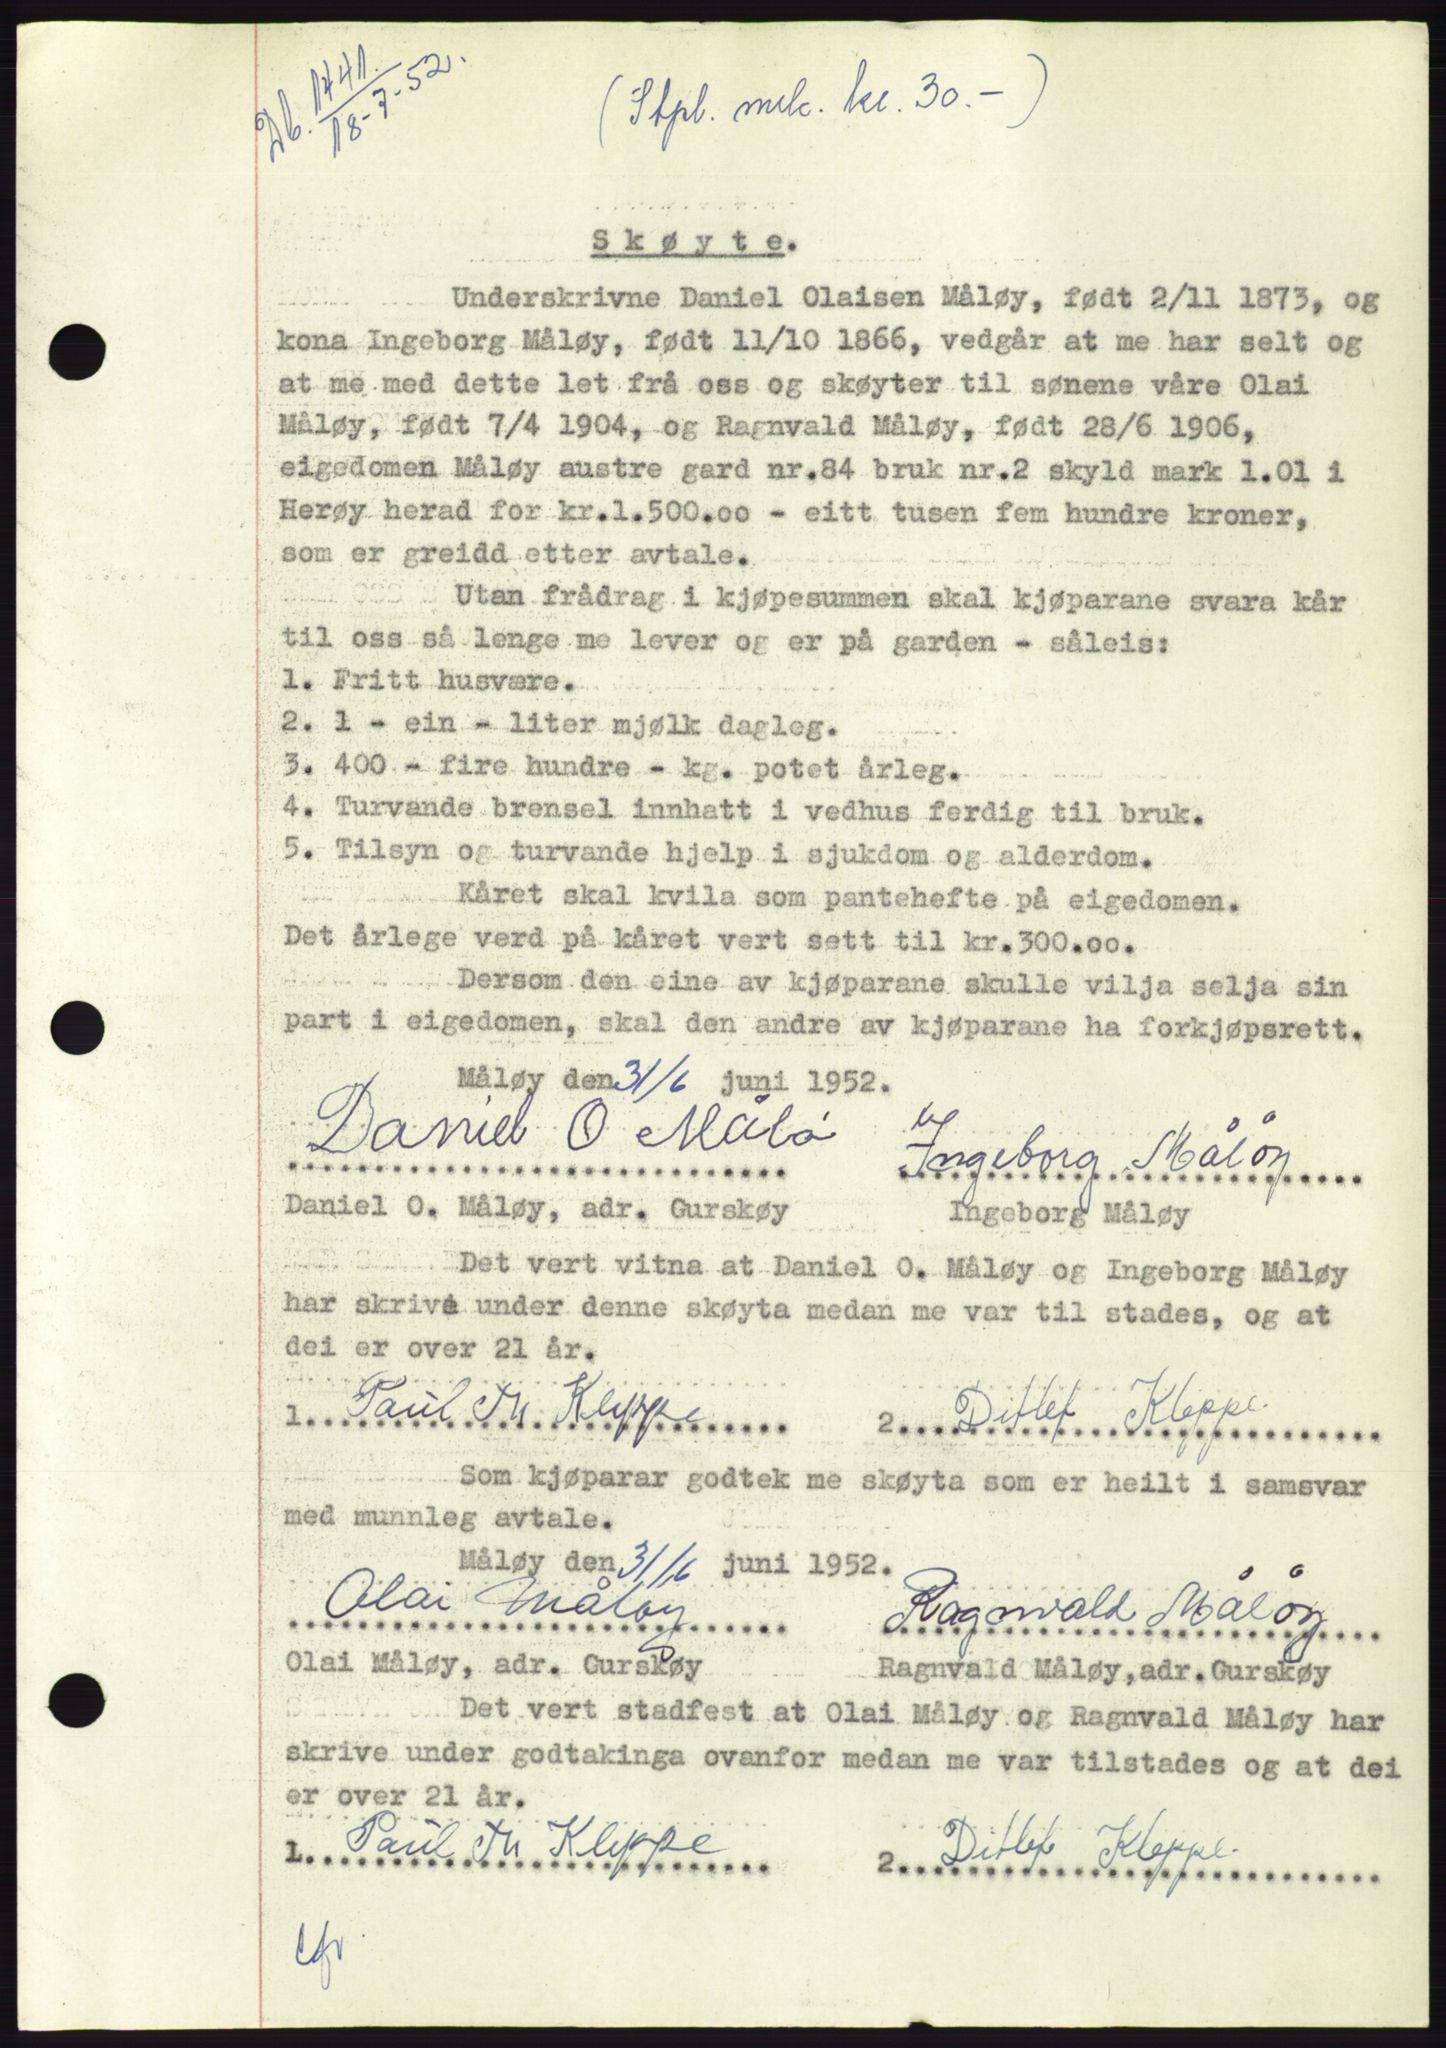 Db. 1741.
18-7-52.
(Stpl. mrk. kr. 30.-)
Skøyte.
Underskrivne Daniel Olaisen Måløy, født 2/11 1873, og
kona Ingeborg Måløy, født 11/10 1866, vedgår at me har selt og
at me med dette let frå oss og skøyter til sønene våre Olai
Måløy, født 7/4 1904, og Ragnvald Måløy, født 28/6 1906,
eigedomen Måløy austre gard nr.84 bruk nr.2 skyld mark 1.01 i
Herøy herad for kr.1.500.oo - eitt tusen fem hundre kroner,
som er greidd etter avtale.
Utan frådrag i kjøpesummen skal kjøparane svara kår
til oss så lenge me lever og er på garden - såleis:
1. Fritt husvære.
2. 1 - ein - liter mjølk dagleg.
3. 400 - fire hundre - kg. potet årleg.
4. Turvande brensel innhatt i vedhus ferdig til bruk.
5. Tilsyn og turvande hjelp i sjukdom og alderdom.
Kåret skal kvila som pantehefte på eigedomen.
Det årlege verd på kåret vert sett til kr.300.oo.
Dersom den eine av kjøparane skulle vilja selja sin
part i eigedomen, skal den andre av kjøparane ha forkjøpsrett.
Måløy den 31/6 juni 1952.
Daniel O Målö Ingeborg Målöy
Daniel O. Måløy, adr. Gurskøy Ingeborg Måløy
Det vert vitna at Daniel O. Måløy og Ingeborg Måløy
har skrive under denne skøyta medan me var til stades, og at
dei er over 21 år.
1. Paul M Kleppe 2. Ditlef Kleppe.
Som kjøparar godtek me skøyta som er heilt i samsvar
med munnleg avtale.
Måløy den 31/6 juni 1952.
Olai Måløy Ragnvald Målöy
Olai Måløy, adr. Gurskøy Ragnvald Måløy,adr.Gurskøy
Det vert stadfest at Olai Måløy og Ragnvald Måløy har
skrive under godtakinga ovanfor medan me var tilstades og at dei
er over 21 år.
1. Paul M Kleppe 2. Ditlef Kleppe.